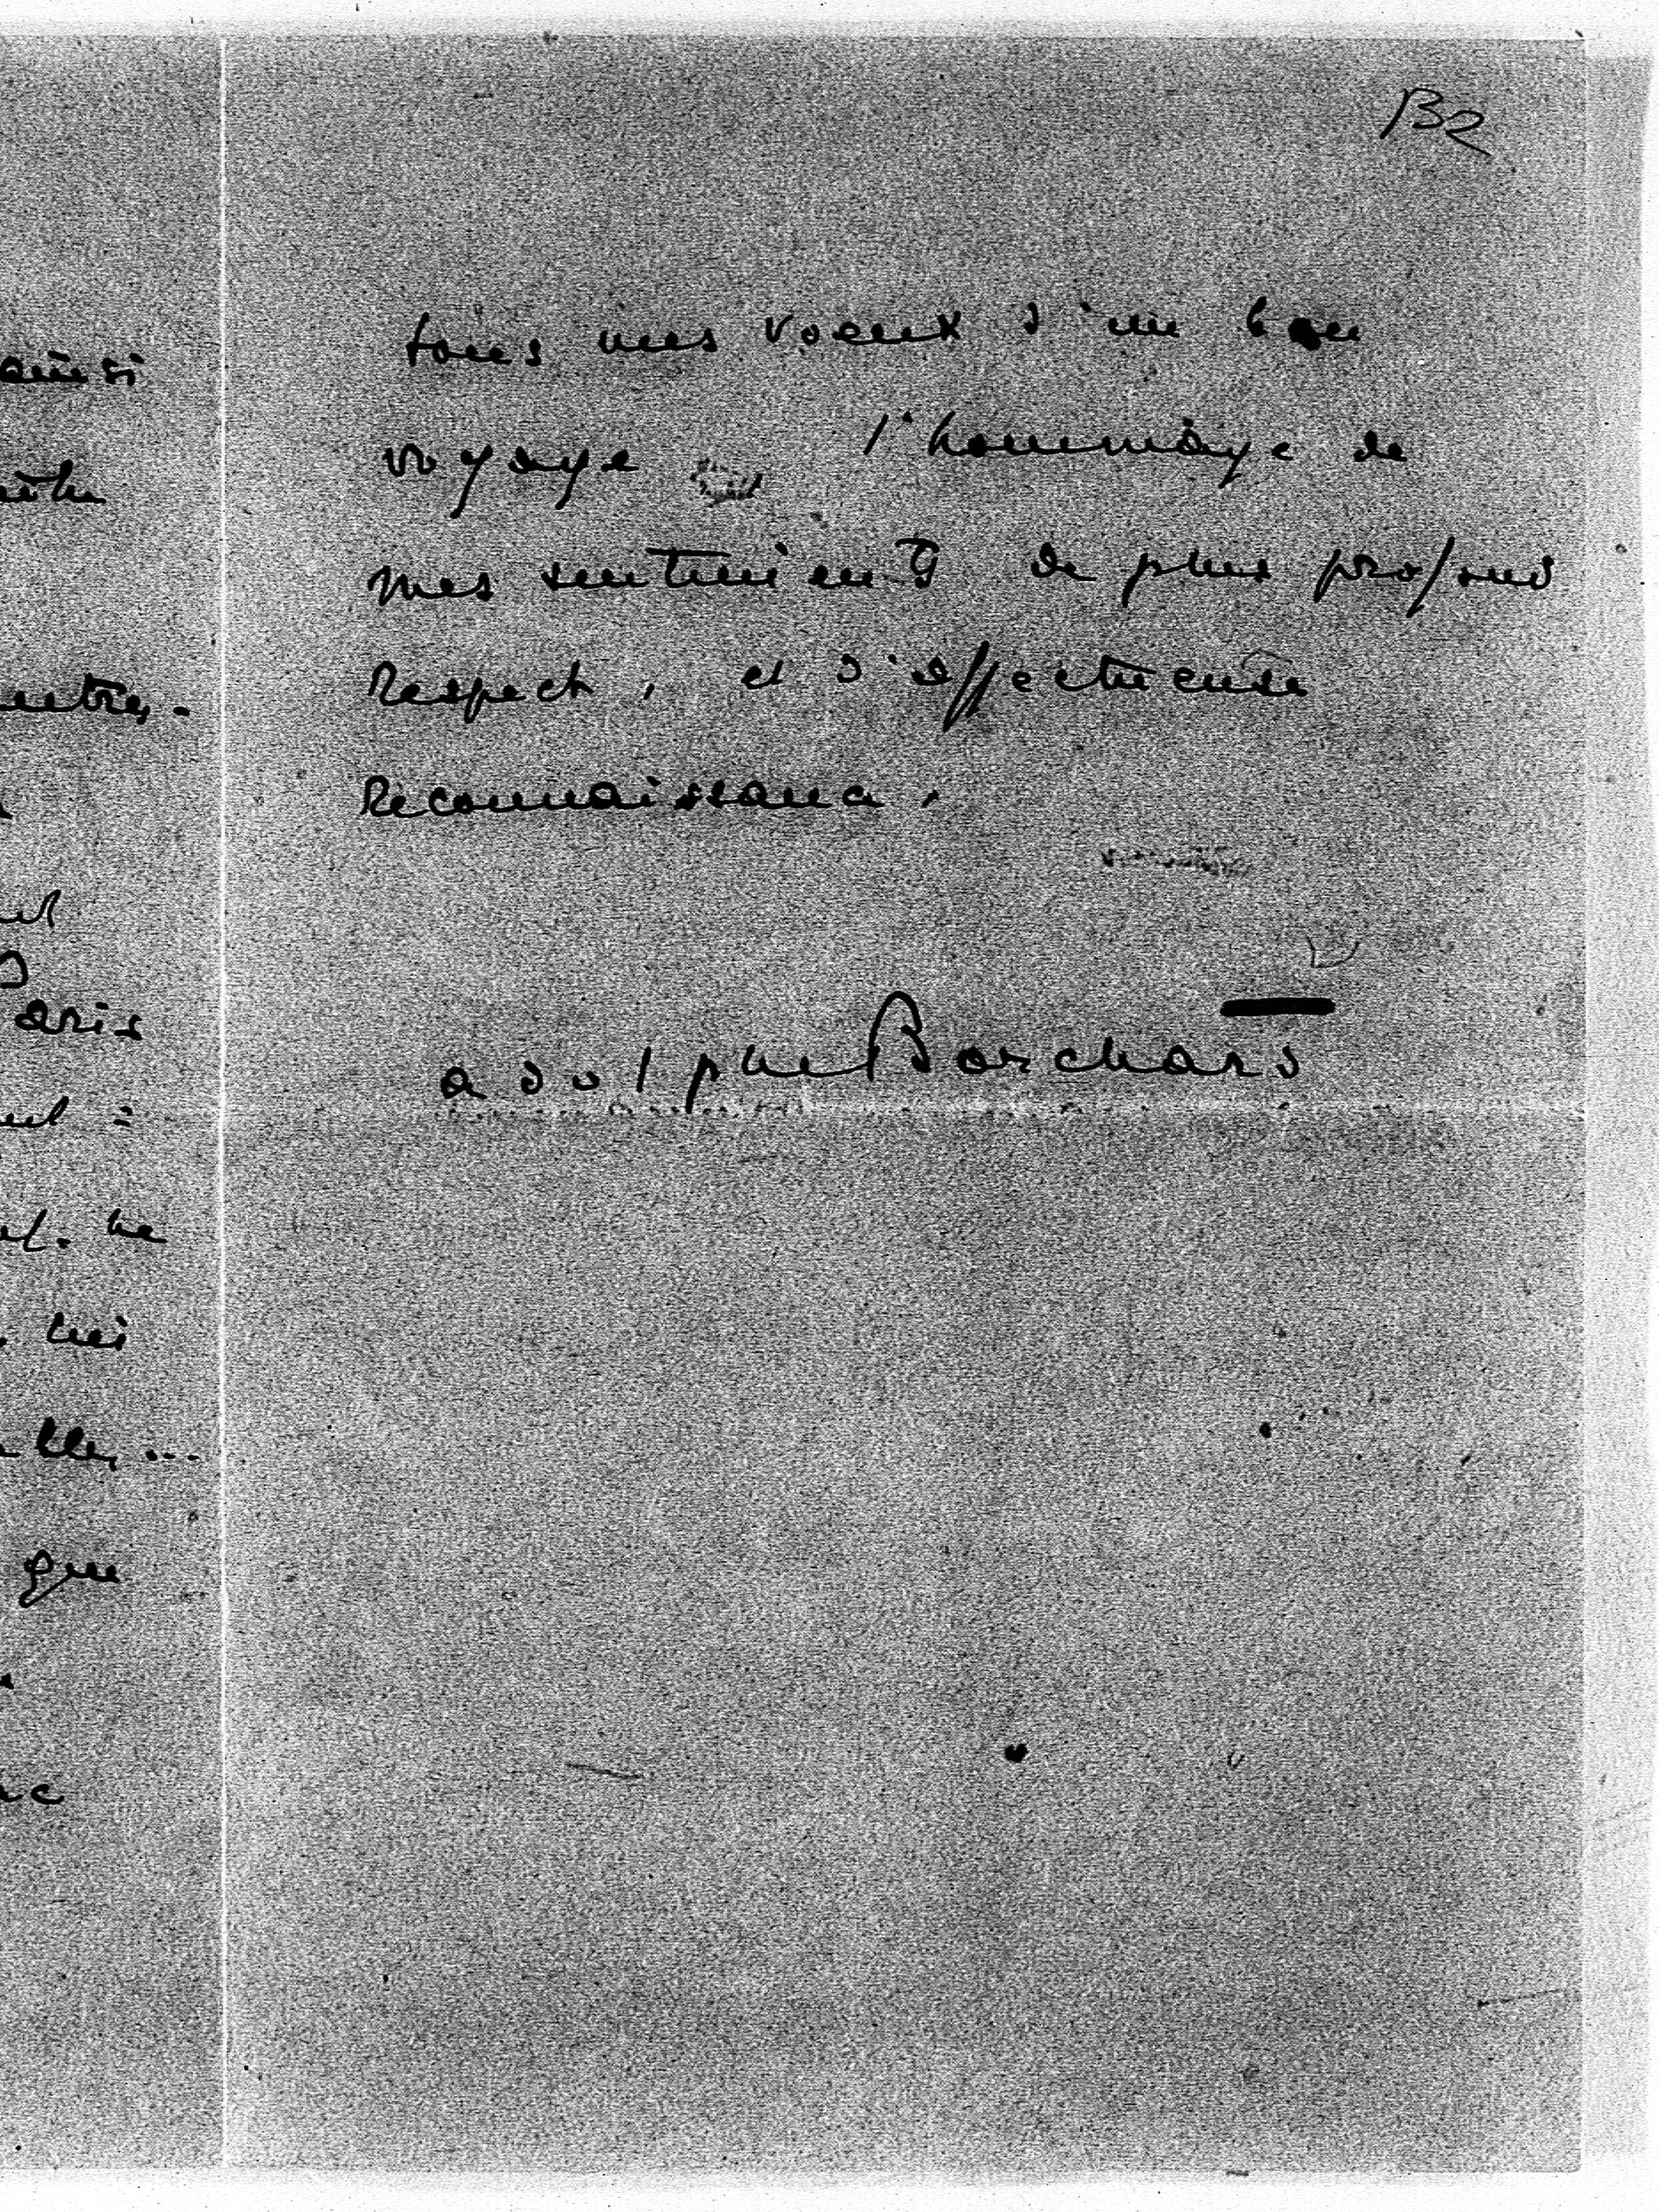 B2
tous mes voeux d'un bon
voyage l'hommage de
mes sentiments de plus profond
Respect, et d'affectueuse
Reconnaissance.
adolphe Borchard
ainsi
autres.
aris
ne
lui
que